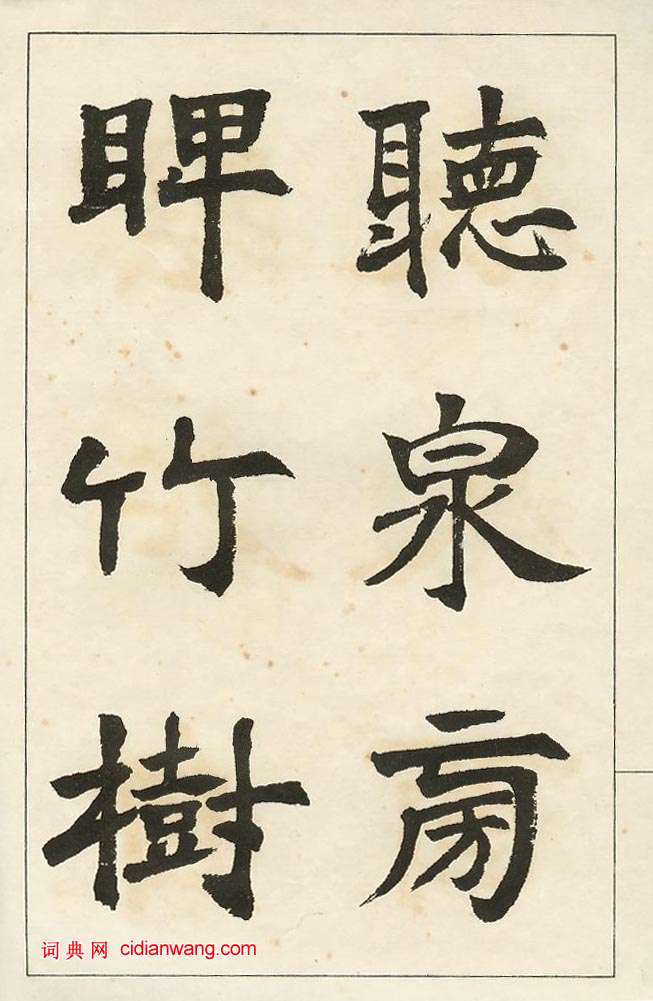 聽泉房
睥竹樹
词典网 cidianwang.com